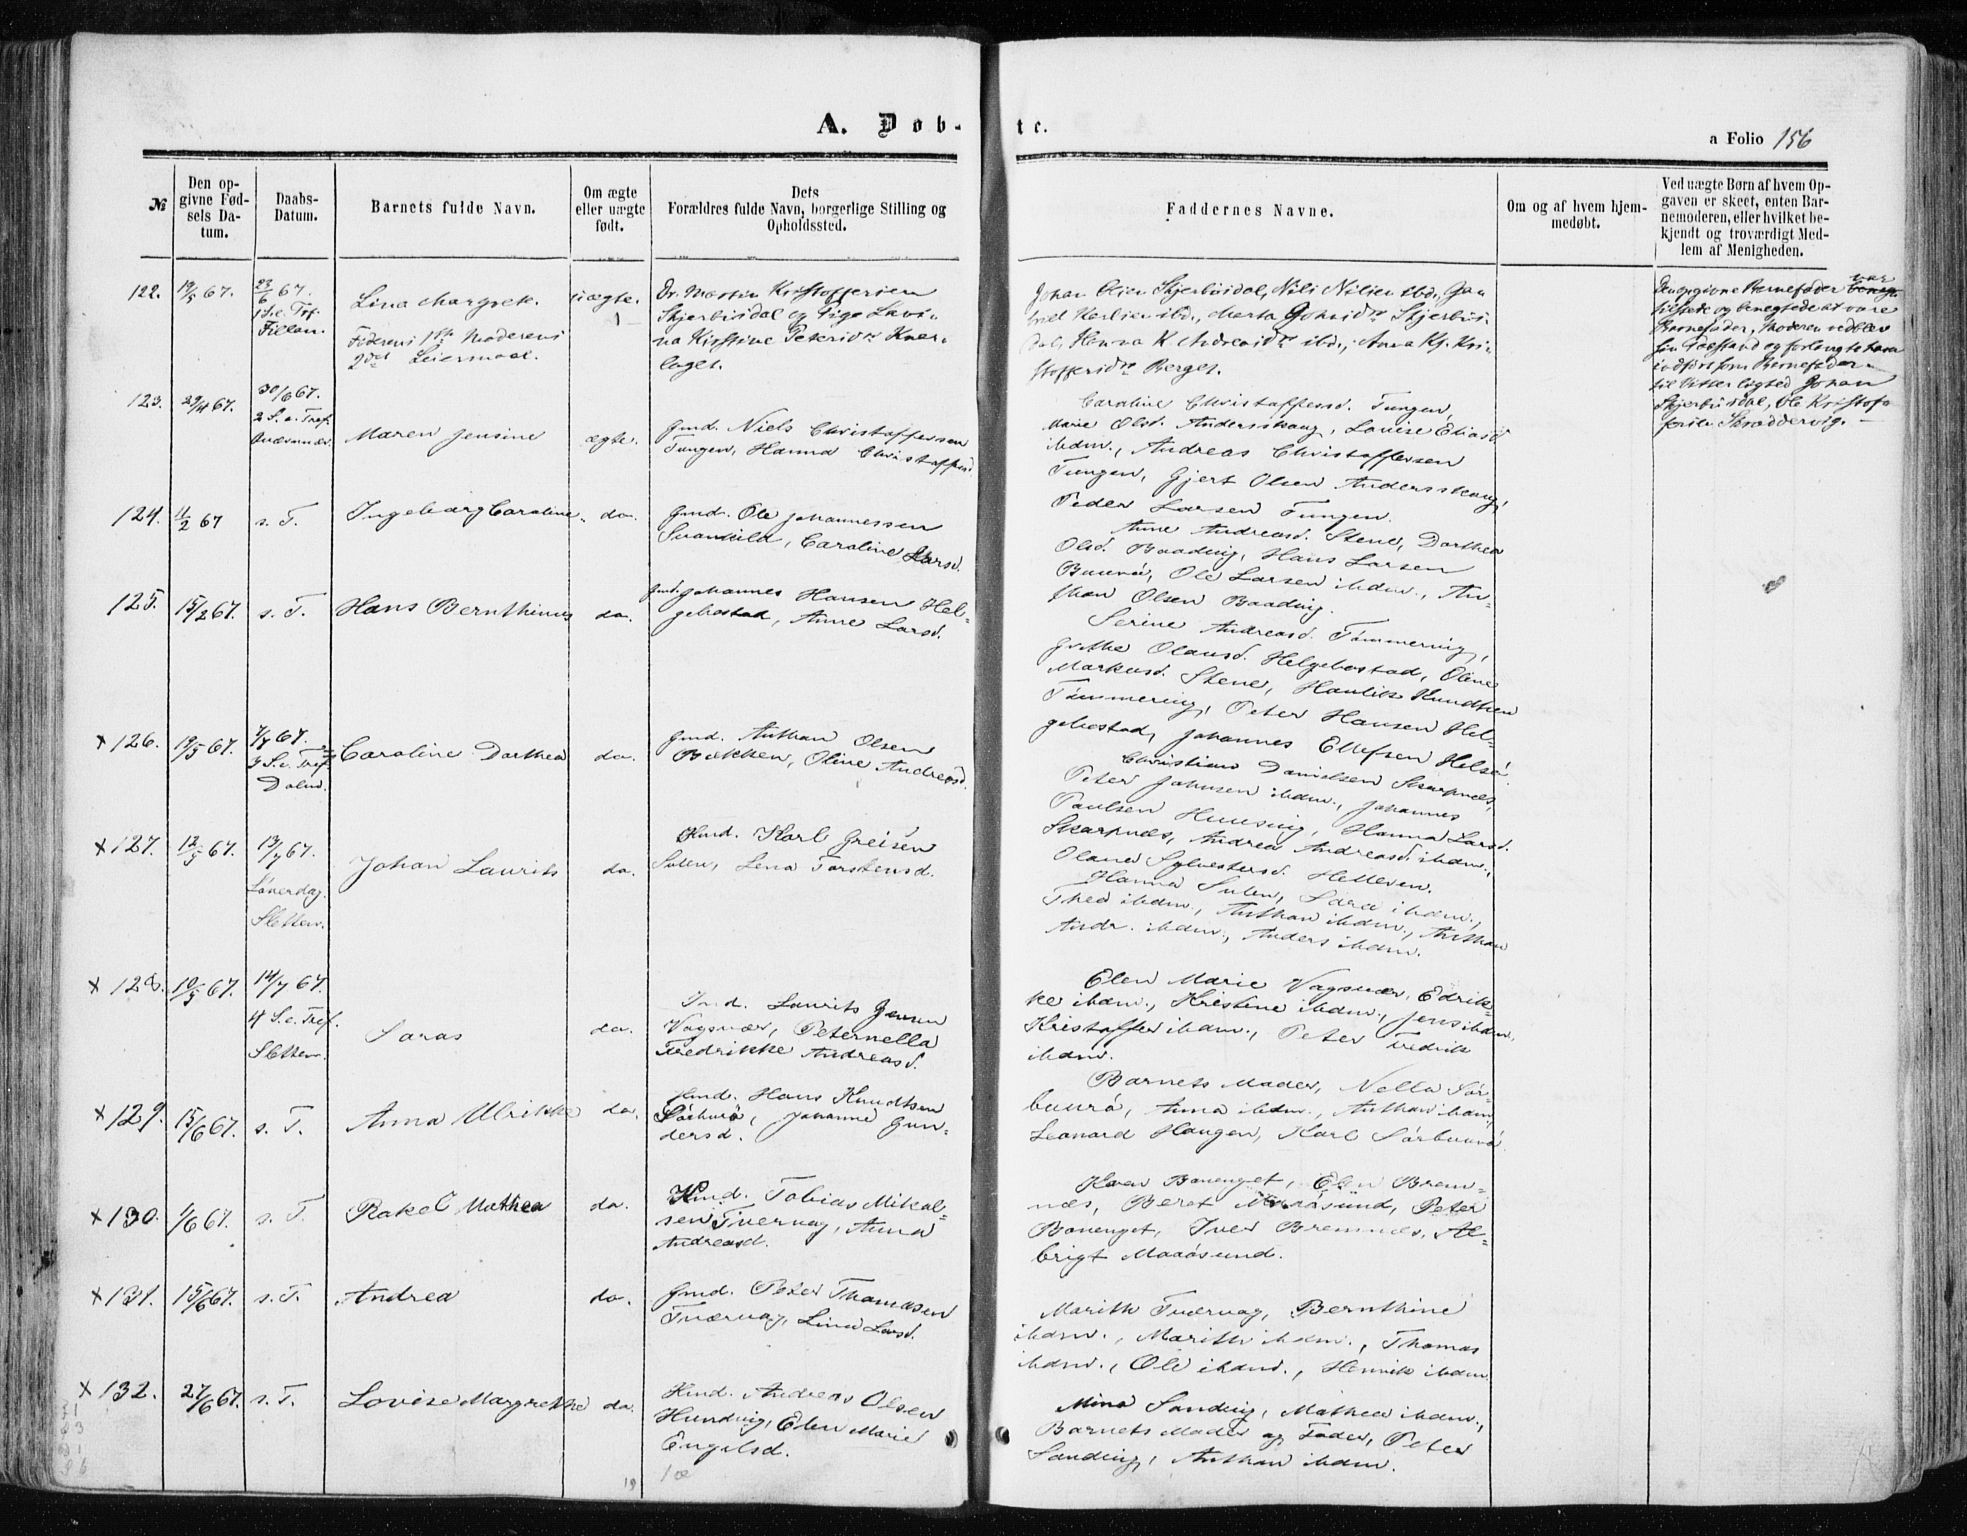 A. Døb-
te.
a Folio 156
№
Den op-
givne Fød-
sels Da-
tum.
Daabs-
Datum.
Barnets fulde Navn.
Om ægte
eller uægte
født.
Dets
Forældres fulde Navn, borgerlige Stilling og
Opholdssted.
Faddernes Navne.
Om og af hvem hjem-
medøbt.
Ved uægte Børn af hvem Op-
gaven er skeet, enten Bar-
nemoderen, eller hvilket be-
kjendt og troværdigt Med-
lem af Menigheden.
122.
19/5 67.
23/6 67.
1 S. e. Tref.
Fillan.
Lina Margrek.
Faderens 1ste Moderens
2det Leiermaal.
uægte.
Dr. Martin Kristoffersen
Skjerbusdal og Pige Lavi-
na Kirstine Petersdtr Knar-
laget.
Johan Olsen Skjerbusdal, Nils Nilsen ibd.,
ibd., Marta Johnsdtr Skjerbus-
dal, Hanna K Andreasdtr ibd., Anna Kr. Kri-
stoffersdtr Berget.
Den opgivne Barnefader var
tilstede og benegtede at være
Barnefader, Moderen vedblev
sin Paastand og forlangte ham
indført som Barnefader
til Vitterlighed Johan
Skjerbusdal, Ole Kristof-
fersen Skraddervig.
123.
29/4 67.
30/6 67.
2 S. e. Tref.
Maren Jensine
ægte.
Gmd. Niels Christoffersen
Tungen, Hanna Christoffersd.
Caroline Christoffersd. Tungen,
Marie Olsd. Andersskaug, Lovise Eliasd
ibdm., Andreas Christoffersen
Tungen, Gjert Olsen Andersskaug,
Peder Larsen Tungen.
124.
11/2 67
s. T.
Ingeborg Caroline.
do.
Gmd. Ole Johannessen
Svankild, Caroline Larsd.
Anne Andreasd. Stene, Dorthea
Olsd. Baading, Hans Larsen
Buurø, Ole Larsen ibdm., An-
than Olsen Baading.
125.
15/2 67.
s. T.
Hans Bernthinus
do.
Gmd. Johannes Hansen Hel-
gebostad, Anne Larsd.
Serine Andreasd. Tømmerving,
Gothe Olausd. Helgebostad, Oline
Markusd. Stene, Hanlik Knudtsen
Tømmerving, Peter Hansen Hel-
gebostad, Johannes Ellefsen Helsø
x 126.
19/5 67.
7/7 67.
3 S. e. Tref.
Dolm.
Caroline Dorthea
do.
Gmd. Anthon Olsen
Bakken, Oline Andreasd.
Christian Danielsen Skarpnes,
Peter Johnsen ibdm., Johannes
Paulsen Hunsvig, Hanna Larsd.
Skarpnæs, Andrea Andreasd. ibdm.,
Olaua Sylvestersd. Hellesen.
x 127.
12/5 67.
13/7 67.
Løverdag
Sletten.
Johan Laurits
do.
Hmd. Karl Greisen
Sulen, Lena Torstensd.
Hanna Sulen, Sara ibdm.,
Thea ibdm., Anthon ibdm., Anthon
Andr. ibdm., Anders ibdm.
x 128.
10/5 67.
14/7 67.
4 S. e. Tref.
Sletten.
Saras
do.
Ind. Laurits Jensen
Vagsvær, Peternella
Fredrikke Andreasd.
Elen Marie Vagsvær, Edrik-
ke ibdm., Kristine ibdm., Jens ibdm.
Kristoffer ibdm., Peter Fredrik
ibdm.
x 129.
15/6 67.
s. T.
Anna Ulrikke
do.
Hmd. Hans Knudtsen
Sørburø, Johanna Gun-
dersd.
Barnets Moder, Nella Sør-
buurø, Anna ibdm., Anthon ibdm.
Leonard Haugen, Karl Sørbuurø
x 130.
4/6 67.
s. T.
Rakel Mathea
do.
Hmd. Tobias Mikal-
sen Tvervag, Anna
Andreasd.
Karen Bonenget, Elen Brem-
næs, Beret Mausund, Peter
Bonenget, Iver Bremnæs, Al-
brigt Maaøsund.
x 131.
15/6 67.
s. T.
Andrea
do.
Gmd. Peter Thomasen
Tværvag, Lina Larsd.
Marith Tværvag, Bernthine
ibdm., Marith ibdm., Thomas
ibdm., Ole ibdm., Henrik ibdm.
x 132.
27/6 67.
s. T.
Lovise Margrethe
do.
Hmd. Andreas Olsen
Hundvig, Elen Marie
Engelsd.
Mina Sandvig, Mathea ibdm.,
Barnets Moder og Fader, Peter
Sandvig, Anthon ibdm.